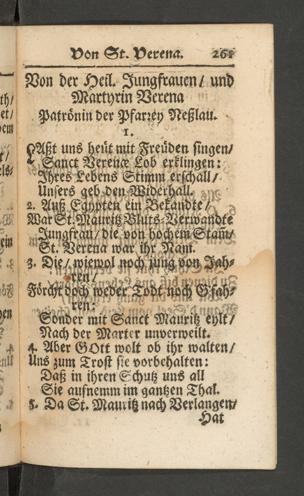 Von St. Verena. 261
Von der Heil. Jungfrauen/ und
Martyrin Verena
Patrönin der Pfarrey Neßlau.
1.
LAßt uns heüt mit Freüden singen/
Sanct Verenæ Lob erklingen:
Ihres Lebens Stimm erschall/
Unsers geb den Widerhall.
2. Auß Egypten ein Bekandte/
War St. Mauritz Bluts-Verwandte
Jungfrau/ die von hochem Stam̃/
St. Verena war ihr Nam.
3. Die/ wiewol noch jung von Jah-
ren/
Förcht doch weder Tod noch Gfah-
ren:
Sonder mit Sanct Mauritz eylt/
Nach der Marter unverweilt.
4. Aber GOtt wolt ob ihr walten/
Uns zum Trost sie vorbehalten:
Daß in ihren Schutz uns all
Sie aufnemm im gantzen Thal.
5. Da St. Mauritz nach Verlangen/
Hat